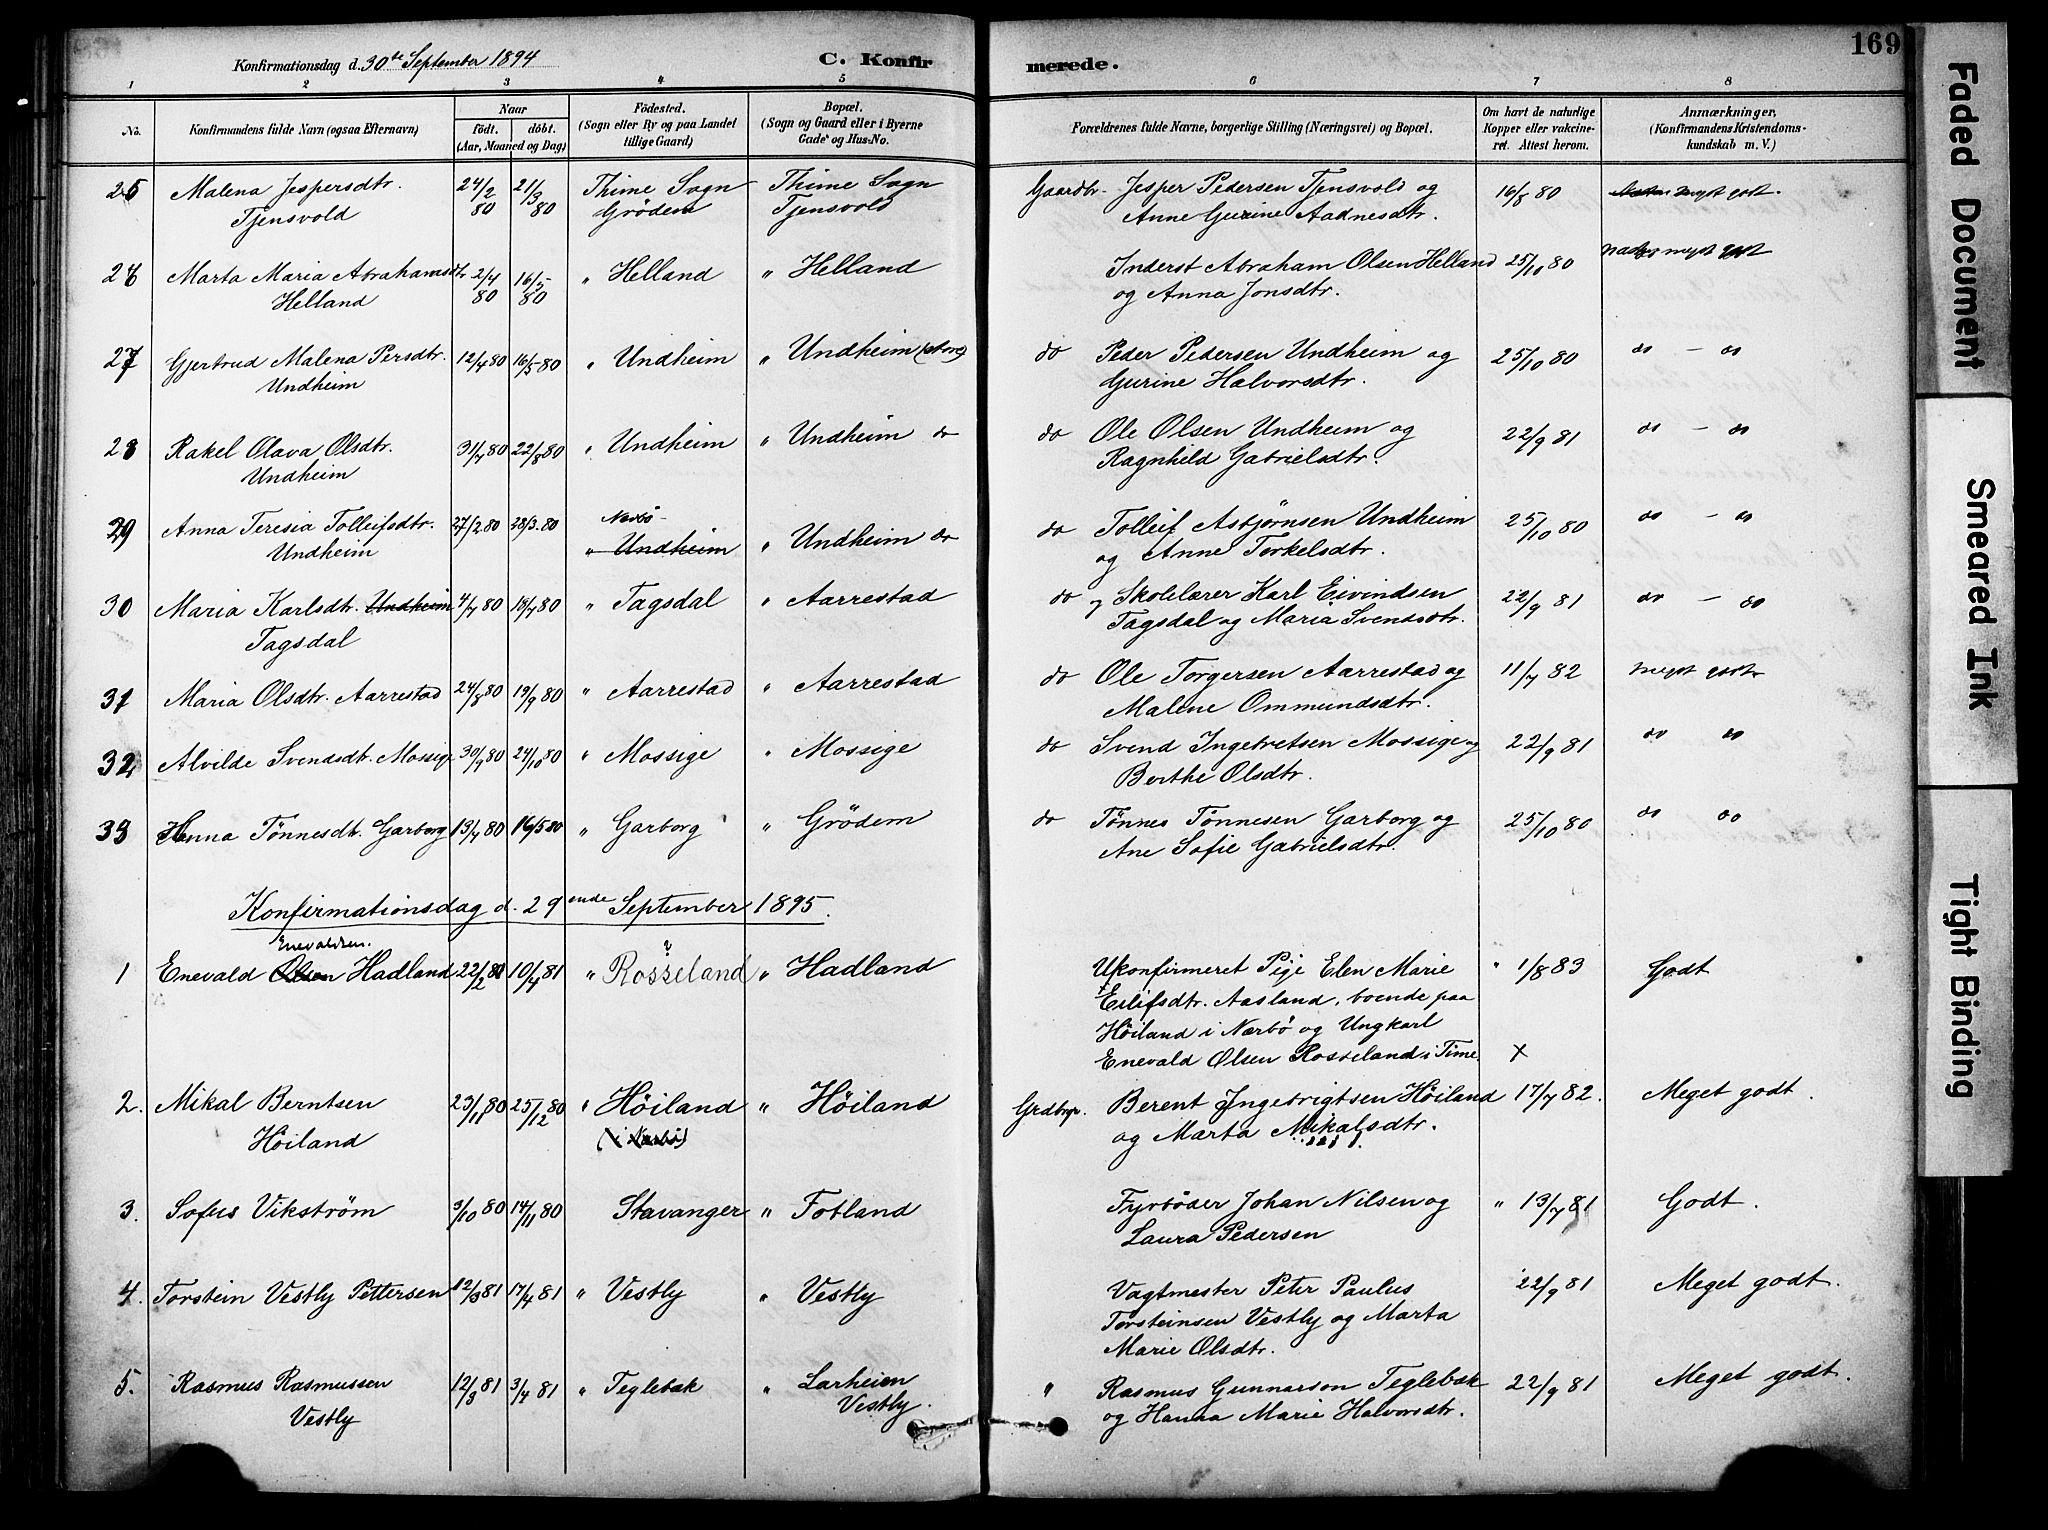 Konfirmationsdag d. 30te September 1894
C. Konfirmerede.
169
1 2 3 4 5 6 7 8
No. Konfirmandens fulde Navn (ogsaa Efternavn) Naar født. døbt. (Aar, Maaned og Dag) Födested. (Sogn eller By og paa Landet tillige Gaard) Bopæl. (Sogn og Gaard eller i Byerne Gade og Hus-No. Forældrenes fulde Navne, borgerlige Stilling (Næringsvei) og Bopæl. Om havt de naturlige Kopper eller vakcineret. Attest herom. Anmærkninger, (Konfirmandens Kristendomskundskab m. V.)
25 Malena Jespersdtr. 24/2 80 21/3 80 Thime Sogn Thime Sogn Gaardbr. Jesper Pedersen Tjensvold og 16/8 80 megt godt.
Tjensvold Grödem Tjensvold Anne Gurine Aadnesdtr.
26 Marta Maria Abrahamsdtr 2/4 80 16/5 80 " Helland " Helland Inderst Abraham Olsen Helland 25/10 80 megt godt
Helland og Anna Jonsdtr.
27 Gjertrud Malena Persdtr. 12/4 80 16/5 80 " Undheim " Undheim (store) do Peder Pedersen Undheim og 25/10 80 do - do
Undheim Gurine Halvorsdtr.
28 Rakel Olava Olsdtr. 31/7 80 22/8 80 " Undheim " Undheim do do Ole Olsen Undheim og 22/9 81 do - do
Undheim Ragnhild Gabrielsdtr.
29 Anna Teresia Tolleifsdtr. 27/2 80 28/3 80 Nærbö- " Undheim " Undheim do do Tolleif Asbjørnsen Undheim 25/10 80 do - do
Undheim og Anne Torkelsdtr.
30 Maria Karlsdtr. Undheim 4/7 80 18/7 80 " Tagsdal " Aarrestad do og Skolelærer Karl Eivindsen 22/9 81 do - do
Tagsdal Tagsdal og Maria Svendsdtr.
31 Maria Olsdtr. Aarrestad 24/8 80 19/9 80 " Aarrestad " Aarrestad do Ole Torgersen Aarrestad og 11/7 82 meget godt
Malene Ommundsdtr.
32 Alvilde Svendsdtr. Mossige 30/9 80 24/10 80 " Mossige " Mossige do Svend Ingebretsen Mossige og 22/9 81 do do
Berthe Olsdtr.
33 Hanna Tønnesdt. Garborg 13/4 80 16/5 80 " Garborg " Grödem do Tønnes Tønnesen Garborg og 25/10 80 do do
Ane Sofie Gabrielsdtr.
Konfirmationsdag d. 29ende September 1895.
Enevaldsen.
1 Enevald Olsen Hadland 22/2 80 10/4 81 " Rosseland " Hadland Ukonfirmeret Pige Elen Marie " 1/8 83 Godt
Eilifsdtr. Aasland, boende paa
Höiland i Nærbö og Ungkarl
Enevald Olsen Rosseland i Time X
2. Mikal Berntsen 23/11 80 25/12 80 " Höiland " Höiland Grdbrgr. Berent Ingebrigtsen Höiland 17/7 82. Meget godt.
Höiland (i Nærbö) og Marta Mikalsdtr.
3. Sofus Vikström 3/10 80 14/11 80 Stavanger " Fotland Fyrböder Johan Nilsen og " 13/7 81 Godt.
Laura Pedersen
4. Torstein Vestly Pettersen 12/3 81 17/4 81 " Vestly " Vestly Vagtmester Peter Paulus 22/9 81 Meget godt.
Torsteinsen Vestly og Marta
Marie Olsdtr.
5. Rasmus Rasmussen 12/3 81 3/4 81 " Teglebæk " Larheim " Rasmus Gunnarson Teglebæk 22/9 81 Meget godt.
Vestly Vestly. og Hanna Marie Halvorsdtr.
Faded Document
Smeared Ink
Tight Binding